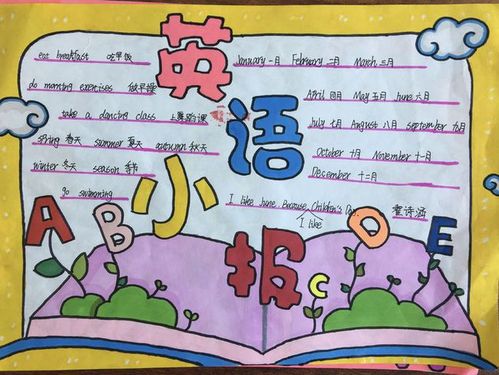 英语小报
eat breakfast 吃早饭
do morning exercises 做早操
take a dancing class 上舞蹈课
spring 春天 summer 夏天 autumn 秋天
winter 冬天 season 季节
go swimming
January 一月 February 二月 March 三月
April 四月 May 五月 June 六月
July 七月 August 八月 september 九月
October 十月 November 十一月
Desember 十二月
I like June. Because Children's Day.
I like
A B C D E